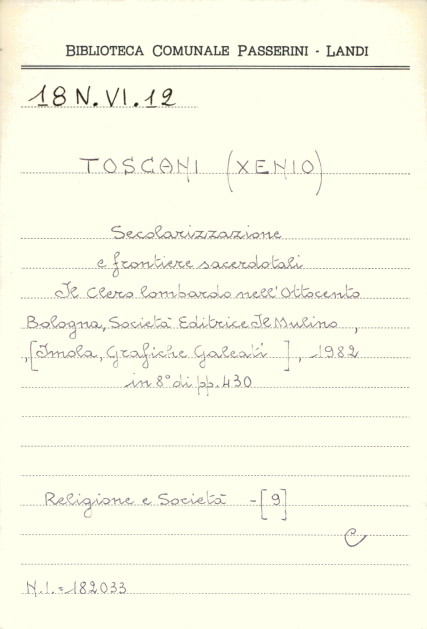 BIBLIOTECA COMUNALE PASSERINI - LANDI
18 N. VI. 12
TOSCANI (XENIO)
Secolarizzazione
e frontiere sacerdotali
Il Clero lombardo nell'Ottocento
Bologna, Società Editrice Il Mulino,
,[Imola, Grafiche Galeati], 1982
in 8° di pp. 430
Religione e Società - [9]
C
N.I. = 182033